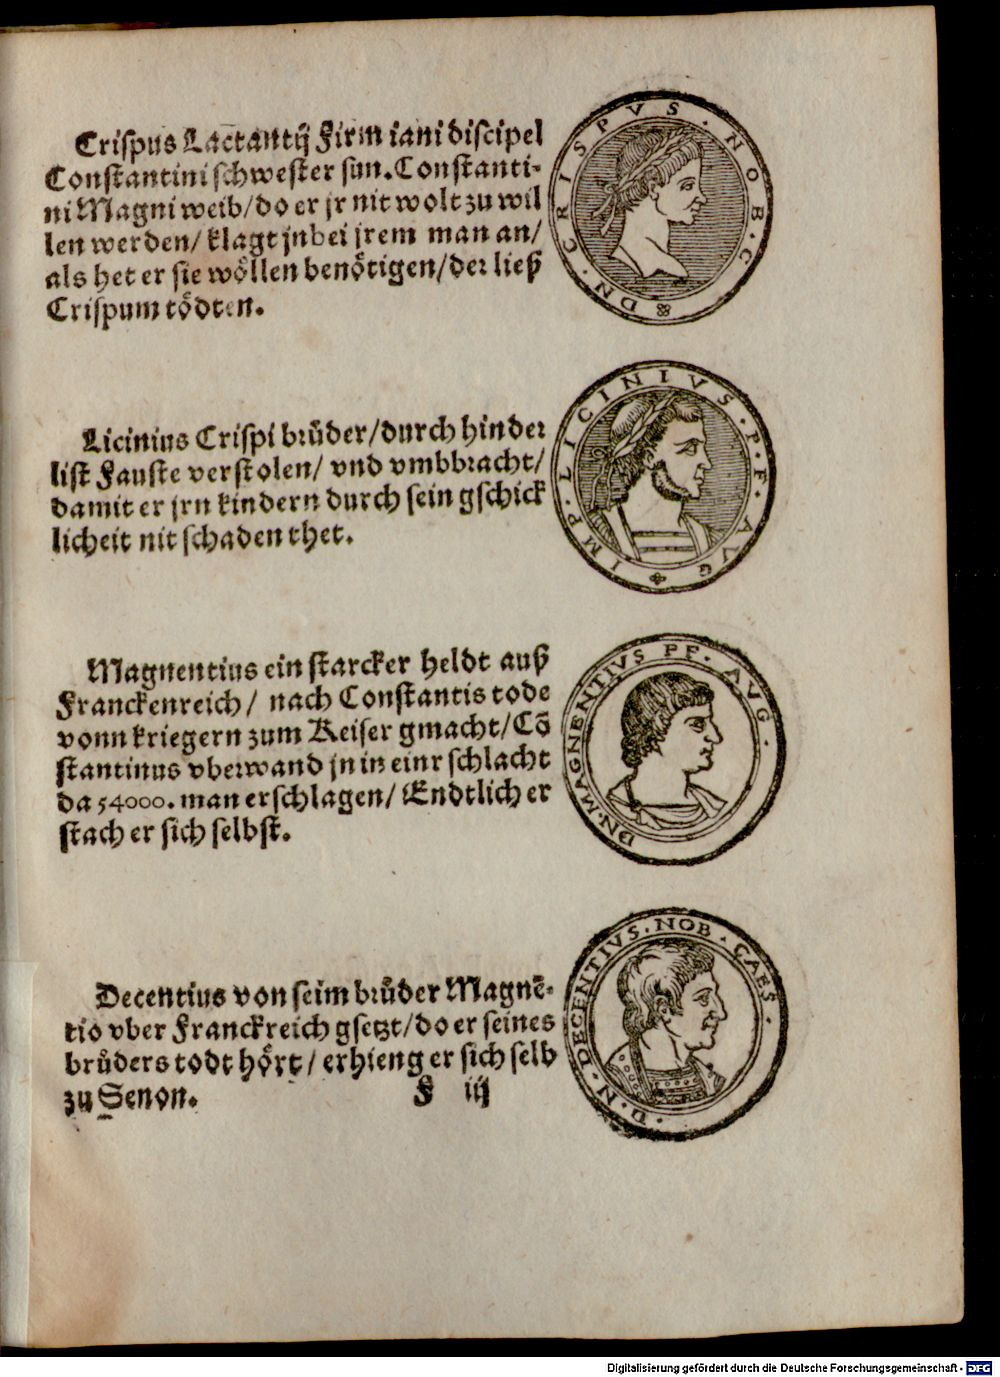 Crispus Lactantij Firmiani discipel
Constantini schwester sun. Constanti-
ni Magni weib/ do er jr nit wolt zu wil
len werden/ klagt jn bei jrem man an/
als het er sie wöllen benötigen/ der ließ
Crispum tödten.
DN. CRISPVS. NOB. C
Licinius Crispi brůder/ durch hinder
list Fauste verstolen/ vnd vmbbracht/
damit er jrn kindern durch sein gschick
licheit nit schaden thet.
IMP. LICINIVS. P. F. AVG
Magnentius ein starcker heldt auß
Franckenreich/ nach Constantis tode
vonn kriegern zum Keiser gmacht/ Cõ
stantinus vberwand jn in einr schlacht
da 54000. man erschlagen/ Endtlich er
stach er sich selbst.
DN. MAGNENTIVS PF. AVG.
Decentius von seim brůder Magnẽ-
tio vber Franckreich gsetzt/ do er seines
brůders todt hört/ erhieng er sich selb
zu Senon.
F iij
D. N. DECENTIVS. NOB. CAES.
Digitalisierung gefördert durch die Deutsche Forschungsgemeinschaft - DFG